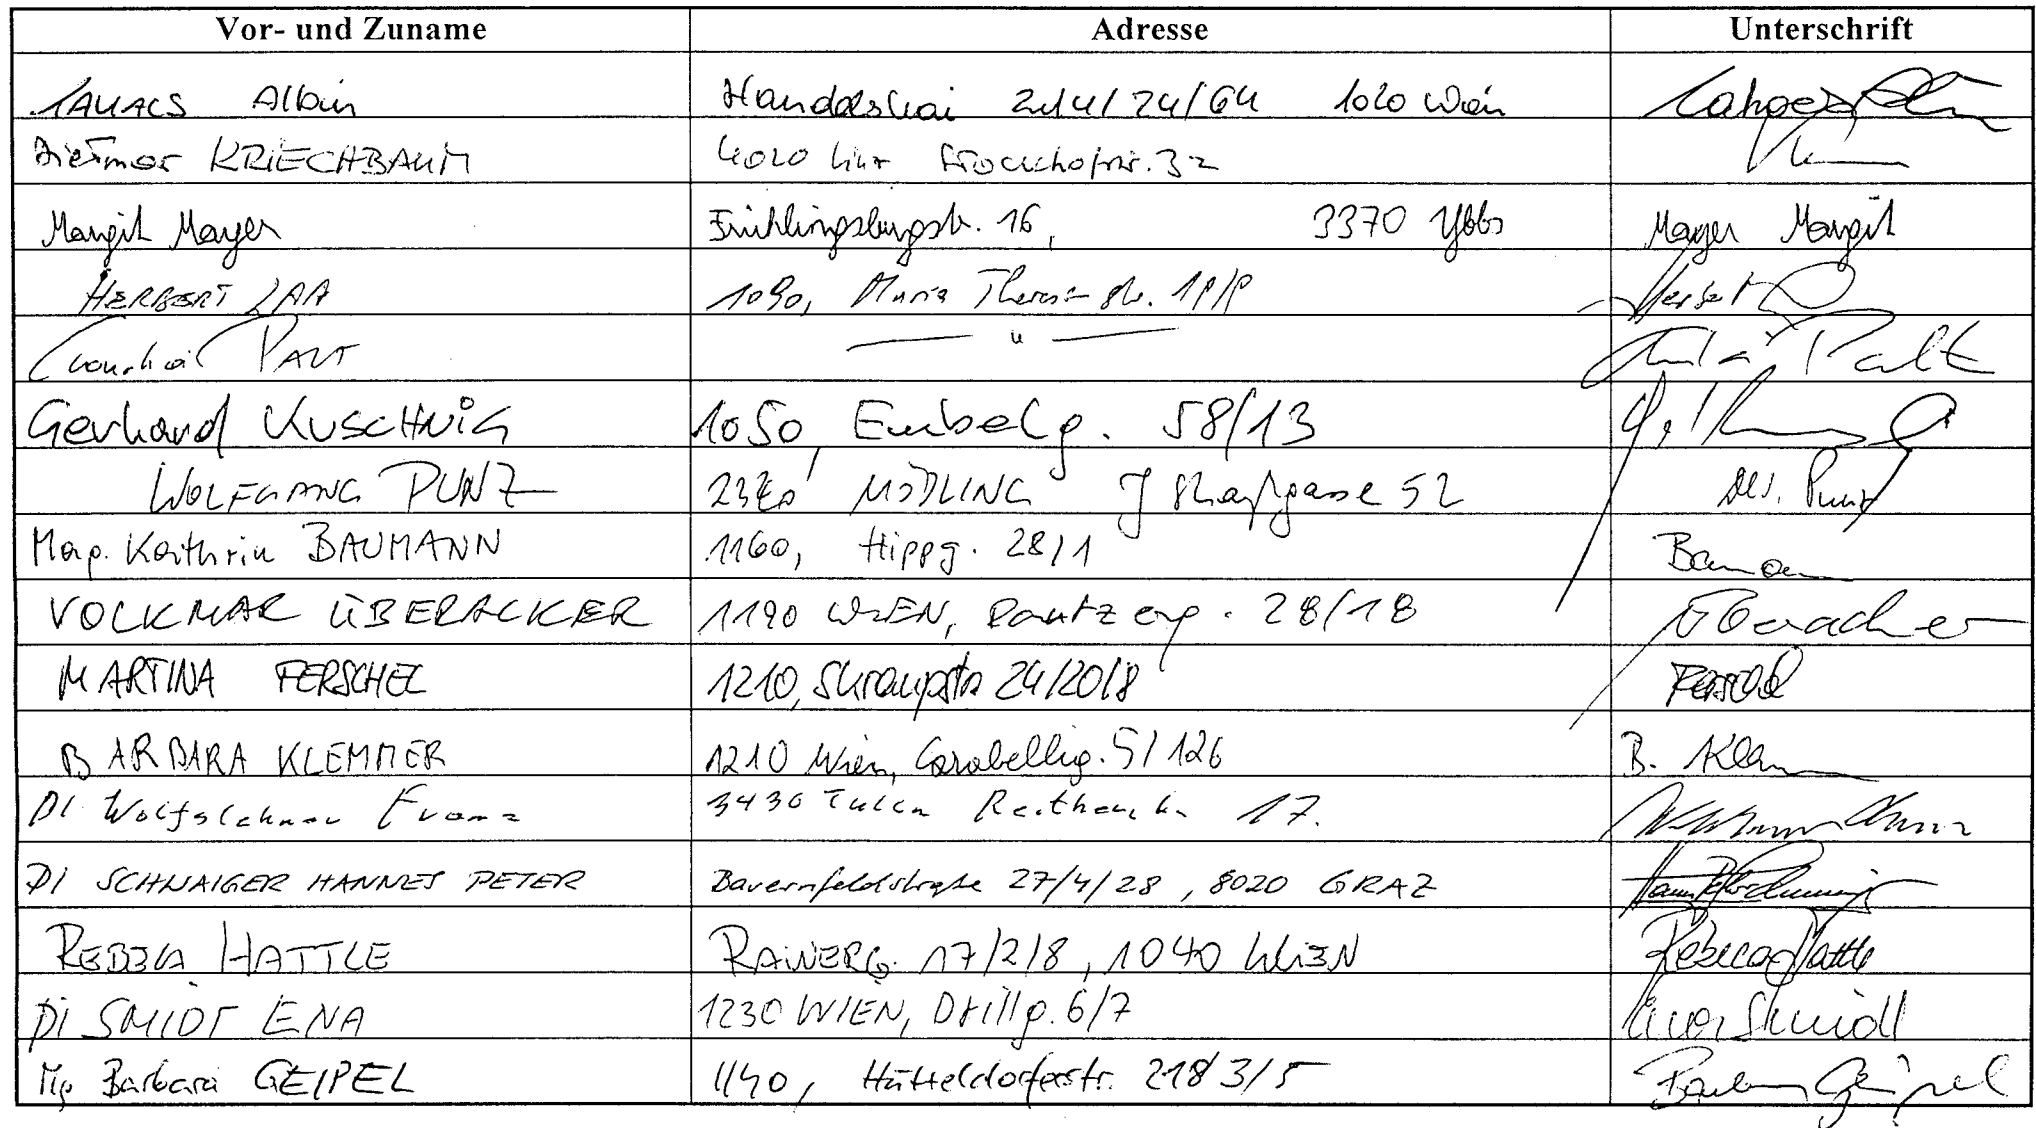 Vor- und Zuname Adresse Unterschrift
Albin Handelskai 214/24/64 1020 Wien
Dietmar KRIECHBAUM 4020 Linz Stockhofstr. 32
Margit Mayer Frühlingsbergstr. 16, 3370 Ybbs Mayer Margit
HERBERT LAA 1090, Maria Theresia str. 19/9 Herbert
PALT — " — Palt
Gerhard KUSCHNIG 1050, Embelg. 58/13
WOLFGANG PUNZ 2340 MÖDLING 52 Punz
Mag. Kathrin BAUMANN 1160, Hippg. 28/1
VOLKMAR ÜBERACKER 1190 WIEN, 28/18
MARTINA FERSCHEL 1210, Skraupstr. 24/20/8 Ferschel
BARBARA KLEMMER 1210 Wien, Carabellig. 5/126 B. Klemmer
DI Wolfslehner Franz 3430 Tulln 17.
DI SCHNAIGER HANNES PETER Bauernfeldstraße 27/4/28, 8020 GRAZ
REBEKA HATTLE RAINERG. 17/2/8, 1040 WIEN Hattle
DI SMIDT ENA 1230 WIEN, Drillg. 6/7
Mag Barbara GEIPEL 1140, Hütteldorferstr. 218/3/5 Barbara Geipel